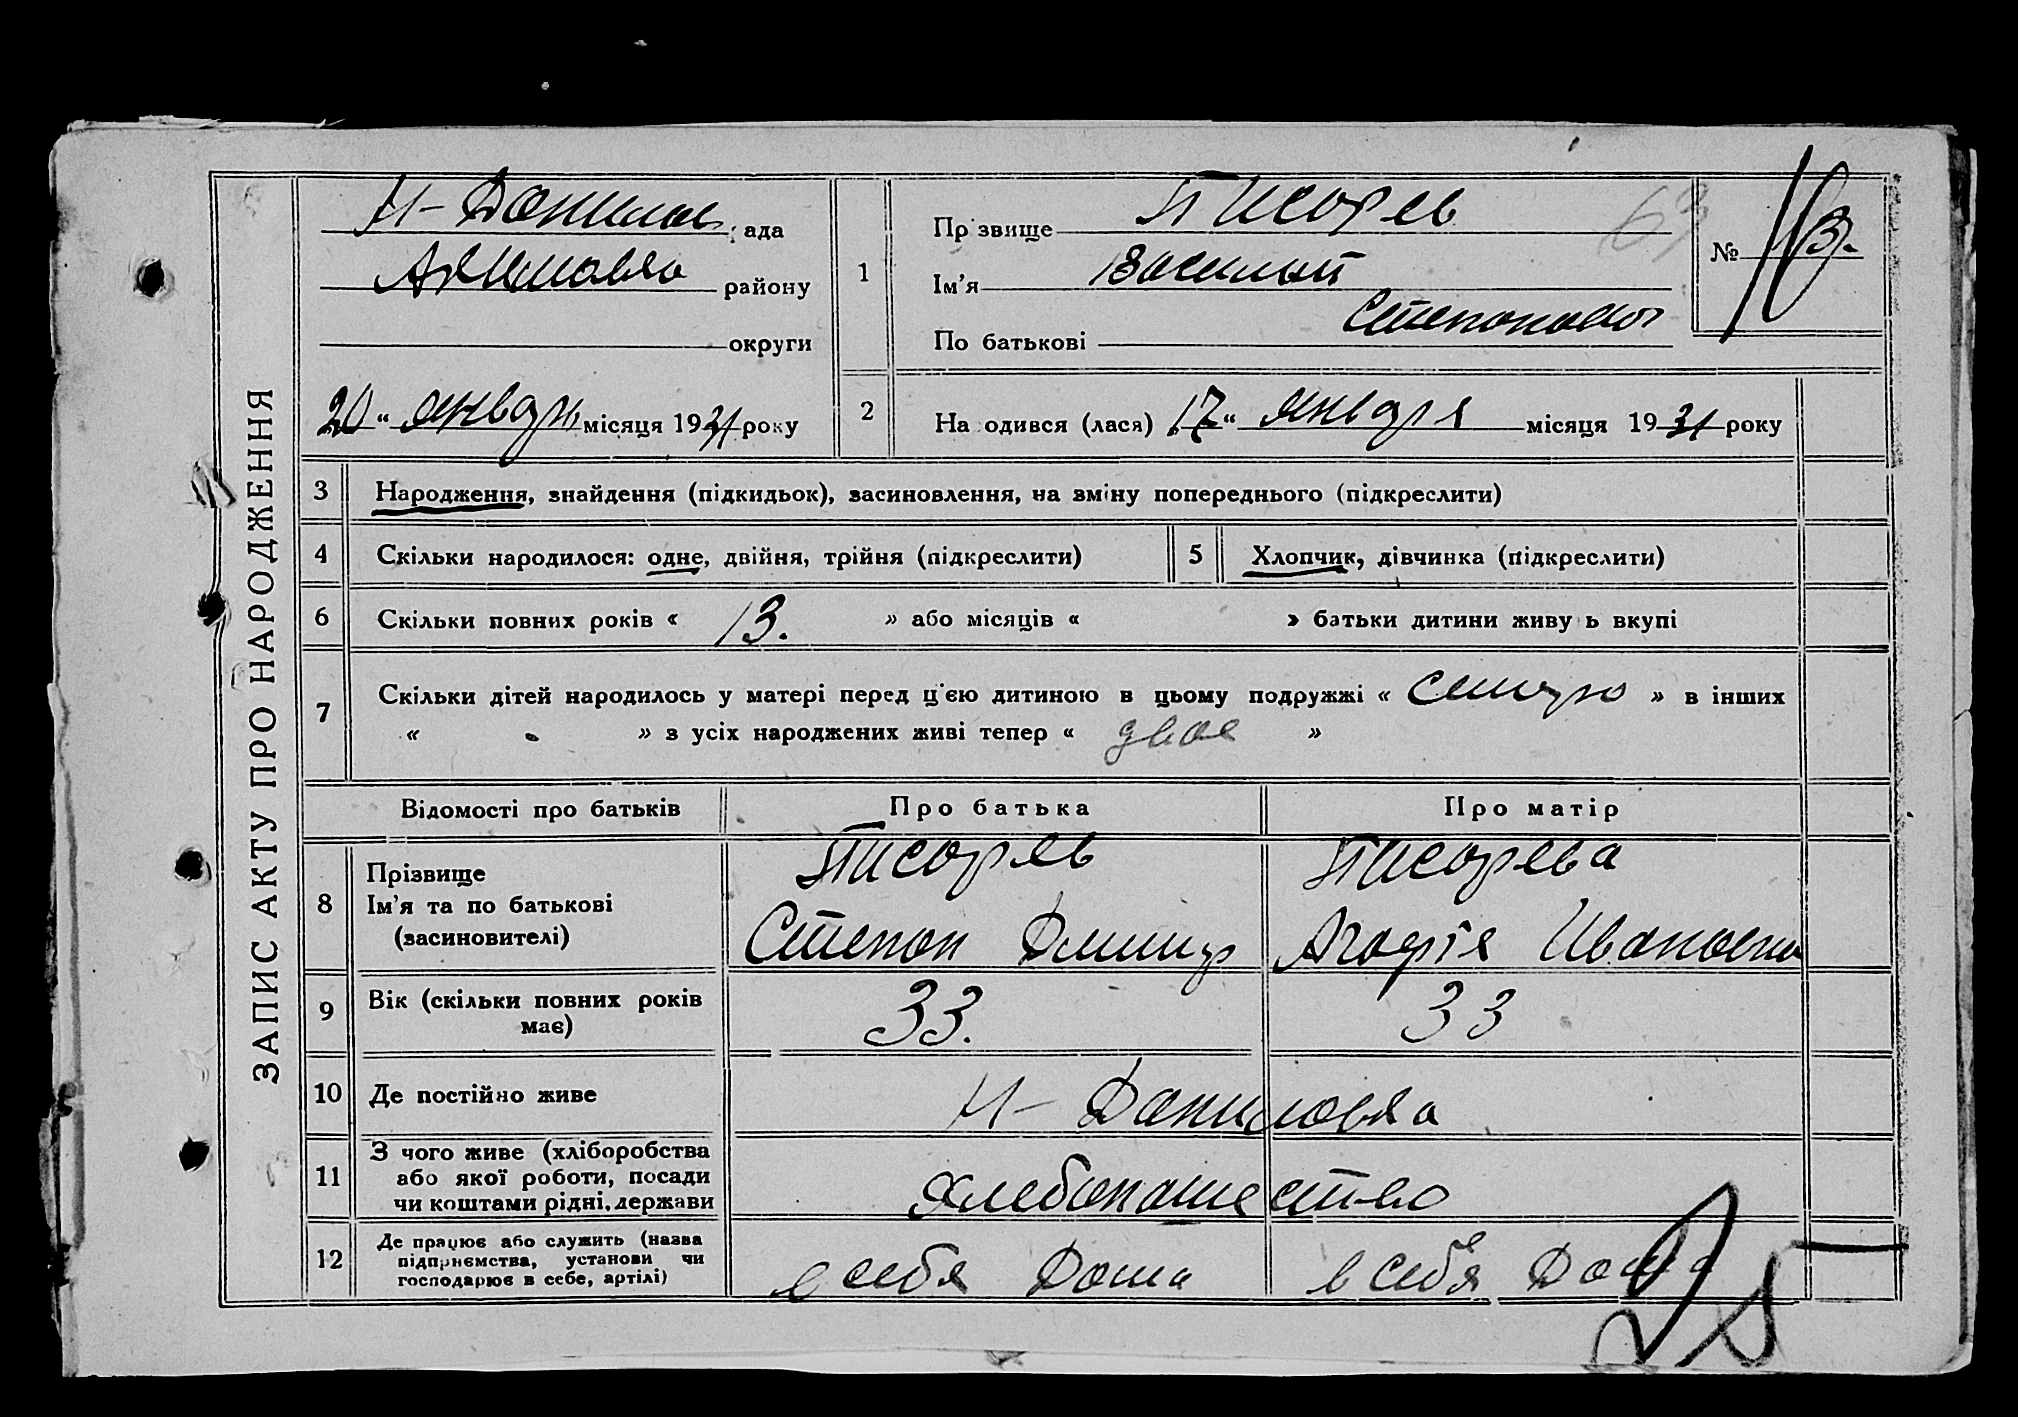 ЗАПИС АКТУ ПРО НАРОДЖЕННЯ
Н-Данилов. ада
Акимовка району
округи
20 “ январь місяця 1931 року
1
Пр звище Писарев
Ім'я Василий
По батькові Степанович
№ 13.
63
2
На одився (лася) 17 “ января місяця 1931 року
3 Народження, знайдення (підкидьок), засиновлення, на зміну попереднього (підкреслити)
4 Скільки народилося: одне, двійня, трійня (підкреслити) 5 Хлопчик, дівчинка (підкреслити)
6 Скільки повних років « 13. » або місяців « » батьки дитини живу ь вкупі
7 Скільки дітей народилось у матері перед ц'єю дитиною в цьому подружжі « » в інших
« » з усіх народжених живі тепер « двое »
Відомості про батьків Про батька Про матір
8 Прізвище
Ім'я та по батькові
(засиновителі)
Писарев Писарева
Степан Дмитр Агафія Ивановна
9 Вік (скільки повних років
має)
33. 33
10 Де постійно живе Н-Даниловка
11 З чого живе (хліборобства
або якої роботи, посади
чи коштами рідні, держави
Хлебопашество
12 Де працює або служить (назва
підприємства, установи чи
господарює в себе, артілі)
в себя дома в себя дома
25